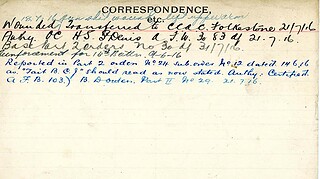 CORRESPONDENCE,
etc.
Wounded Transferred to C.C.A.C. Folkestone 21/7/16
Authy OC HS St Denis A.F.W. 3083 df 21.7.16.
Base Part 2 orders No 30 df 31/7/16.
Reinforcement 9-6-16
Reported in Part 2 orders No 24 sub order No 12 dated 14 6 16
as "Tait B.C." should read as now stated. Authy. Certified
A.F.B. 103. B.D. orders. Part II No 29. 21.7.16.